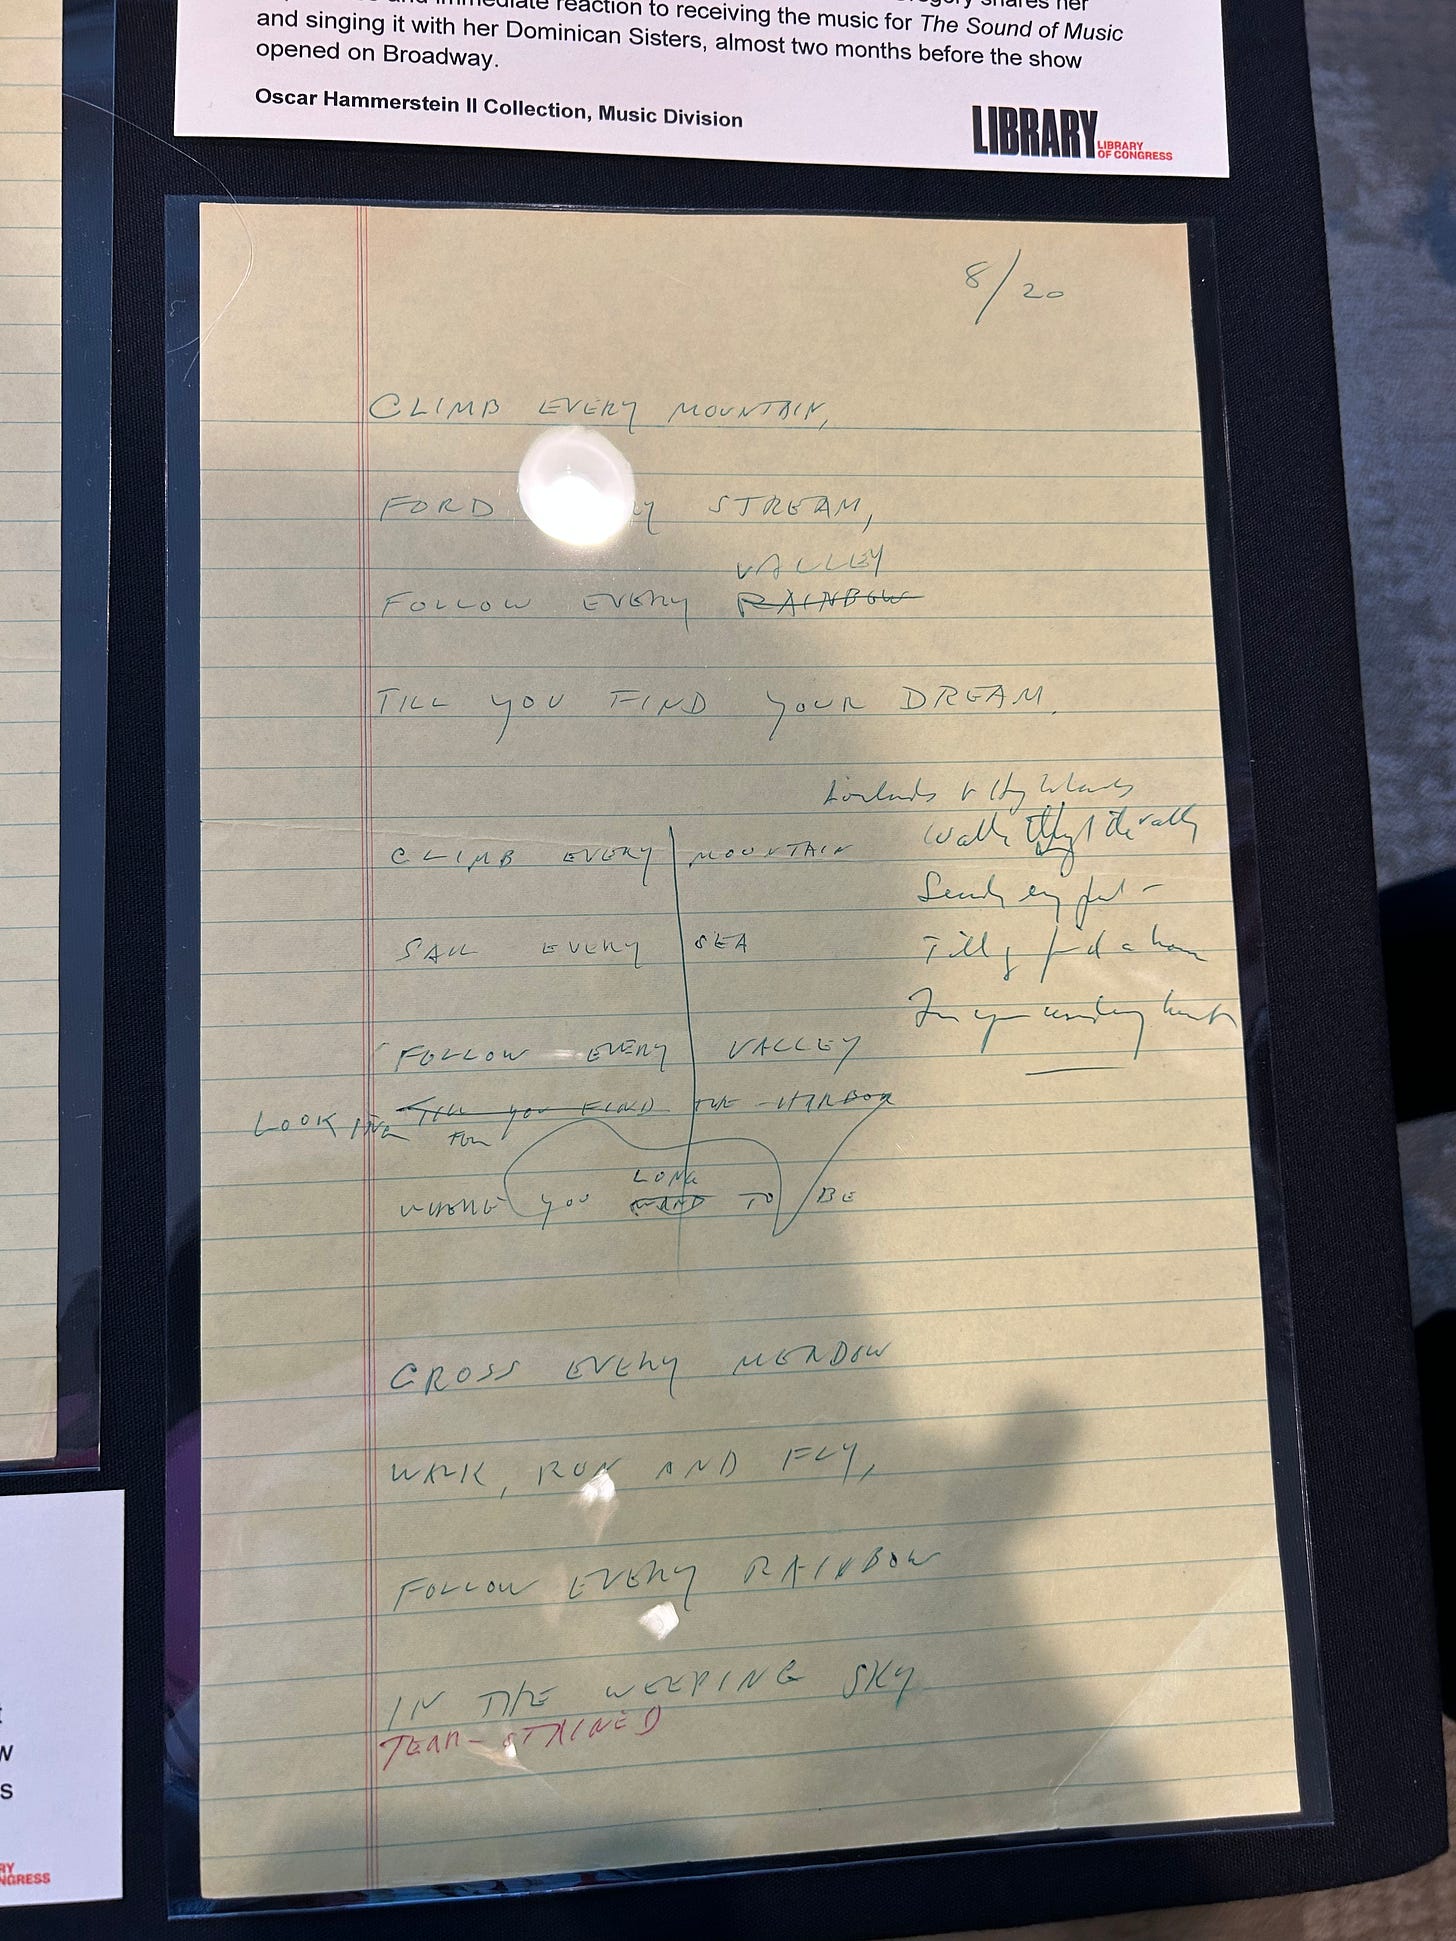 reaction to receiving the music for The Sound of Music
and singing it with her Dominican Sisters, almost two months before the show
opened on Broadway.
Oscar Hammerstein II Collection, Music Division
LIBRARY
LIBRARY
OF CONGRESS
8/20
CLIMB EVERY MOUNTAIN,
FORD STREAM,
VALLEY
FOLLOW EVERY RAINBOW
TILL YOU FIND YOUR DREAM.
CLIMB EVERY MOUNTAIN
SAIL EVERY SEA
FOLLOW EVERY VALLEY
TILL YOU FIND THE HARBOR
LOOKING FOR
LONG
WHERE YOU WANT TO BE
CROSS EVERY MEADOW
WALK, RUN AND FLY,
FOLLOW EVERY RAINBOW
IN THE WEEPING SKY
TEAR-STAINED